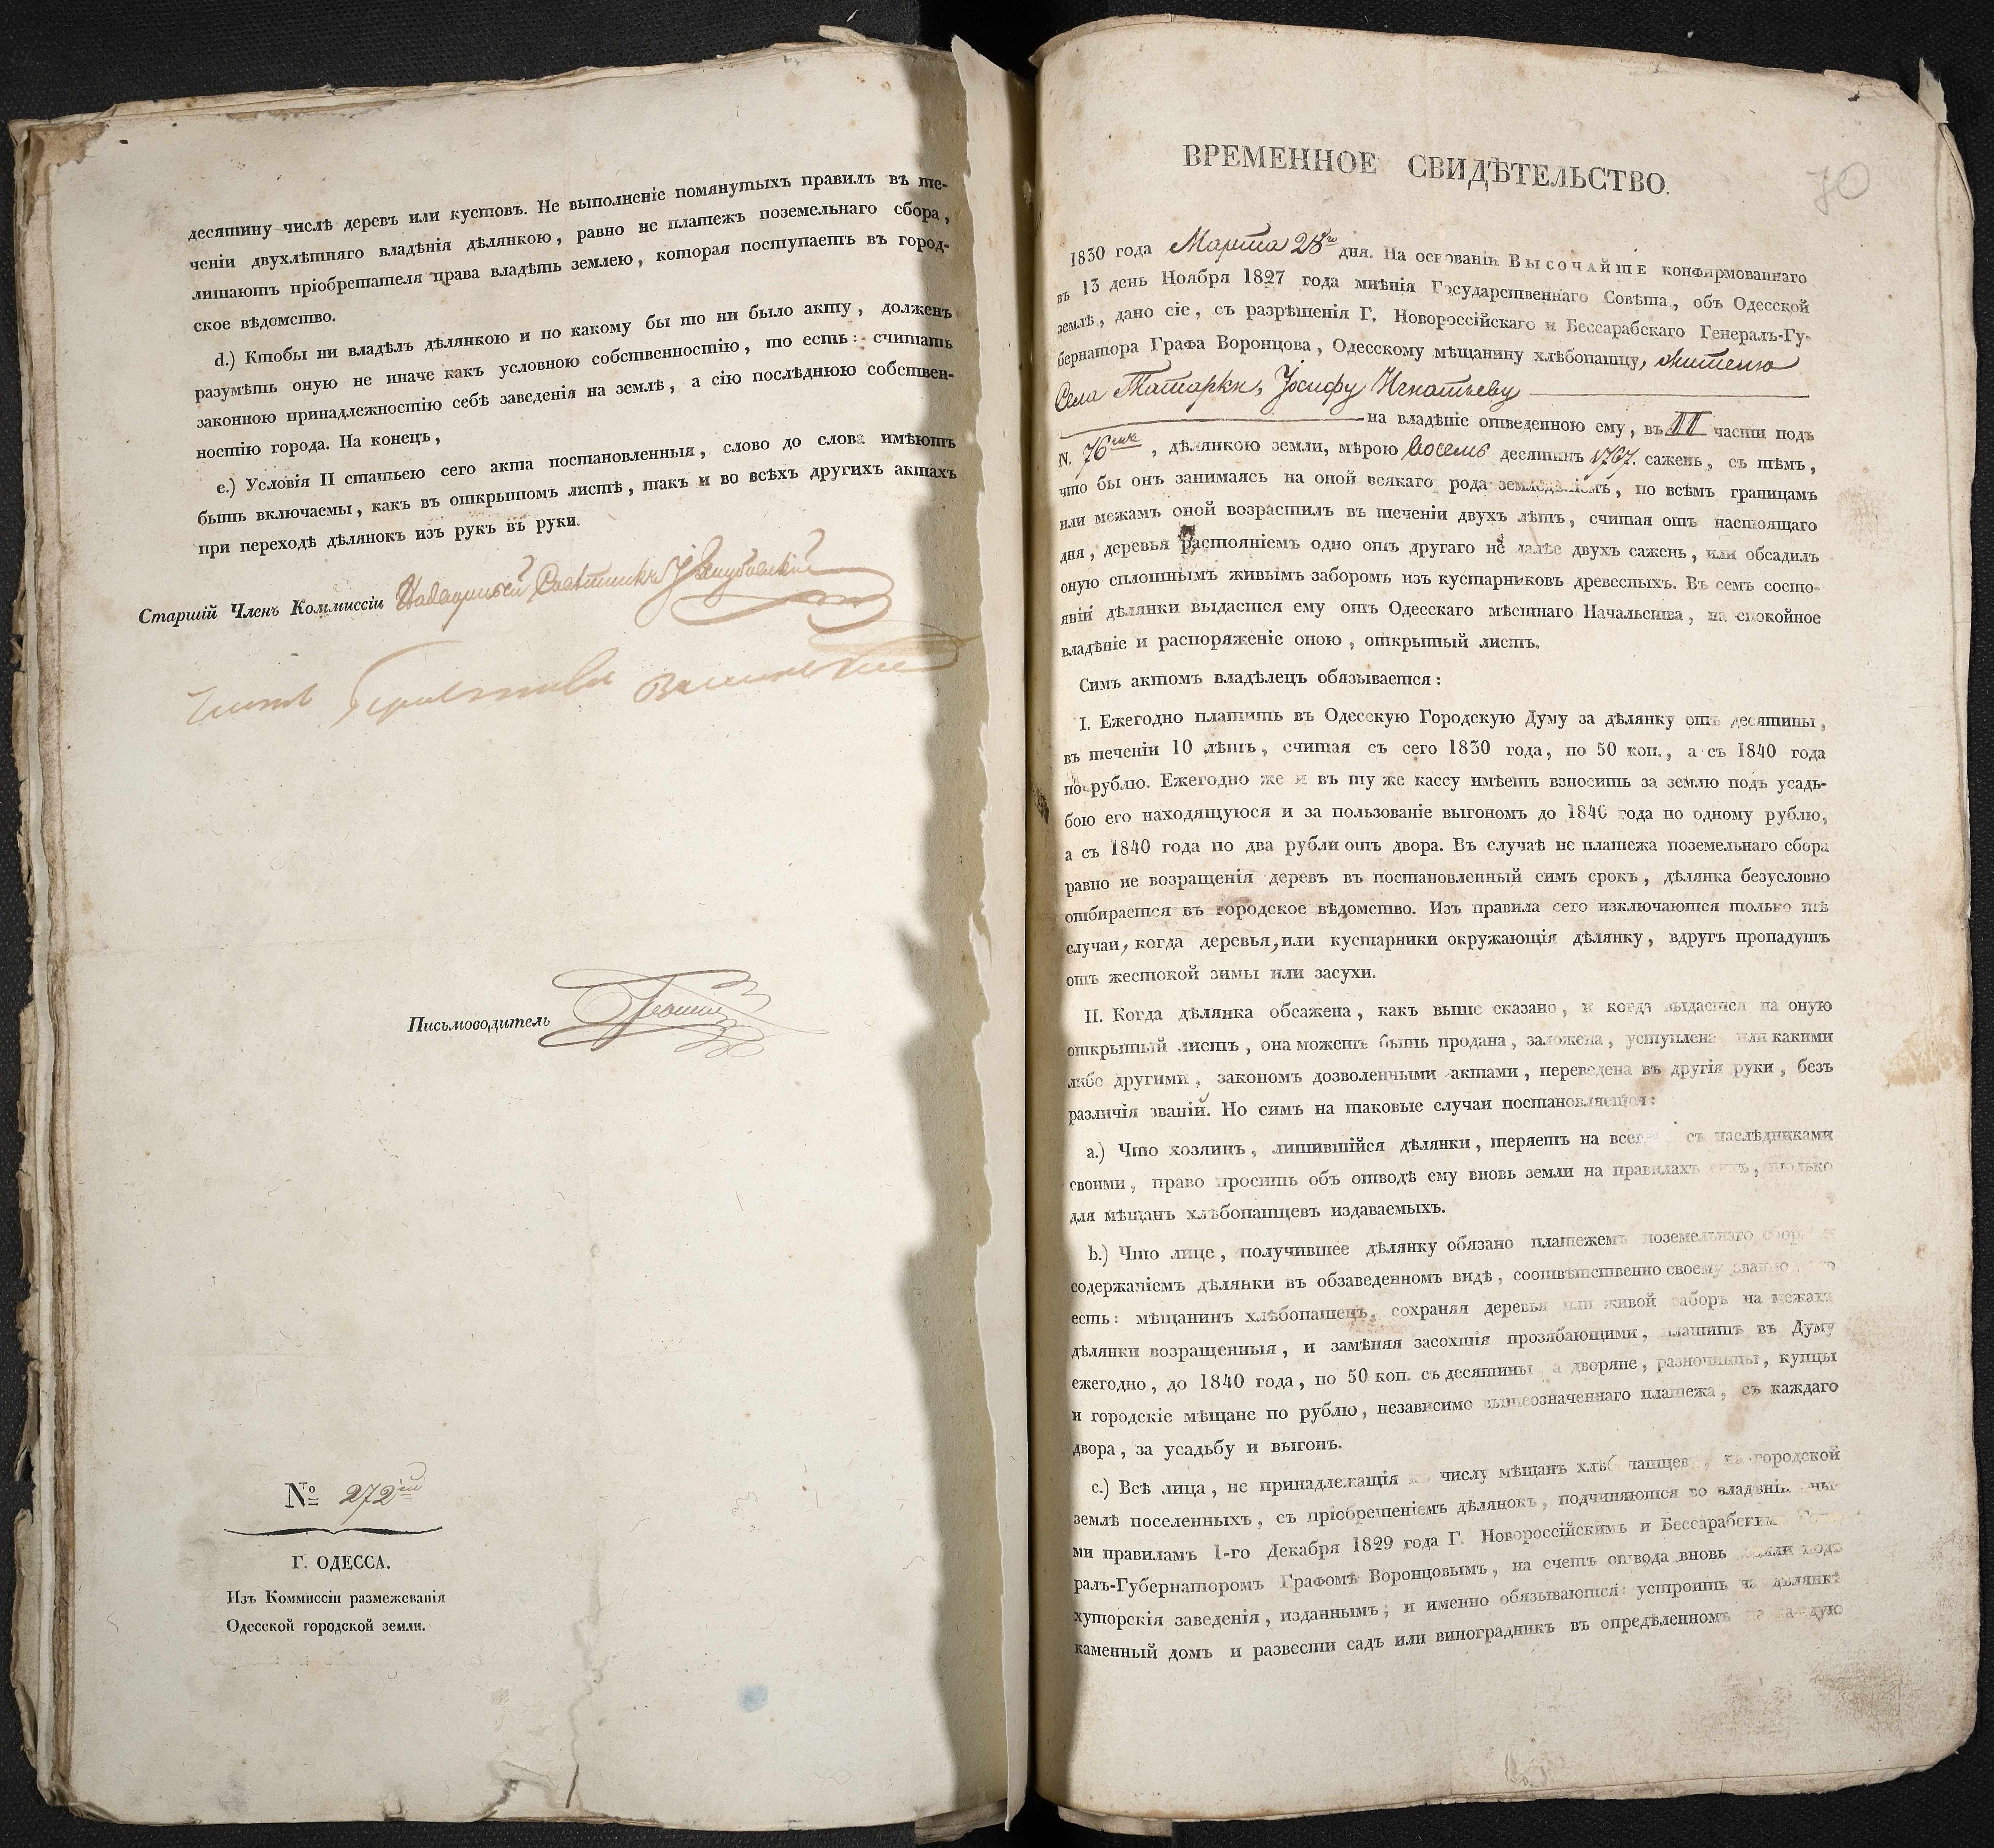 десятину числѣ деревъ или кустовъ. Не выполненіе помянутыхъ правилъ въ те-
ченіи двухлѣтняго владѣнія дѣлянкою, равно не платежъ поземельнаго сбора,
лишаютъ пріобретателя права владѣть землею, которая поступаетъ въ город-
ское вѣдомство.
d.) Ктобы ни владѣлъ дѣлянкою и по какому бы то ни было акту, долженъ
разумѣть оную не иначе какъ условною собственностію, то есть: считать
законною принадлежностію себѣ заведенія на землѣ, а сію послѣднюю собствен-
ностію города. На конецъ,
e.) Условія II статьею сего акта постановленныя, слово до слова имѣютъ
быть включаемы, какъ въ открытомъ листѣ, такъ и во всѣхъ другихъ актахъ
при переходѣ дѣлянокъ изъ рукъ въ руки.
Старшій Членъ Коммиссіи Надворный Совѣтникъ
Письмоводитель
№ 272
Г. ОДЕССА.
Изъ Коммиссіи размежеванія
Одесской городской земли.
70
ВРЕМЕННОЕ СВИДѢТЕЛЬСТВО.
1830 года Марта 28го дня. На основаніи Высочайше конфирмованнаго
въ 13 день Ноября 1827 года мнѣнія Государственнаго Совѣта, объ Одесской
землѣ, дано сіе, съ разрѣшенія Г. Новороссійскаго и Бессарабскаго Генералъ-Гу-
бернатора Графа Воронцова, Одесскому мѣщанину хлѣбопашцу, жителю
Села Татарки, Іосифу Игнатьеву
на владѣніе отведенною ему, въ II части подъ
N. 76 , дѣлянкою земли, мѣрою восемь десятинъ 1767. сажень, съ тѣмъ,
что бы онъ занимаясь на оной всякаго рода земледѣліемъ, по всѣмъ границамъ
или межамъ оной возрастилъ въ теченіи двухъ лѣтъ, считая отъ настоящаго
дня, деревья растояніемъ одно отъ другаго не далѣе двухъ сажень, или обсадилъ
оную сплошнымъ живымъ заборомъ изъ кустарниковъ древесныхъ. Въ семъ состо-
яніи дѣлянки выдастся ему отъ Одесскаго мѣстнаго Начальства, на спокойное
владѣніе и распоряженіе оною, открытый листъ.
Симъ актомъ владѣлецъ обязывается:
I. Ежегодно платить въ Одесскую Городскую Думу за дѣлянку отъ десятины,
въ теченіи 10 лѣтъ, считая съ сего 1830 года, по 50 коп., а съ 1840 года
по рублю. Ежегодно же и въ ту же кассу имѣетъ взносить за землю подъ усадь-
бою его находящуюся и за пользованіе выгономъ до 1840 года по одному рублю,
а съ 1840 года по два рубли отъ двора. Въ случаѣ не платежа поземельнаго сбора
равно не возращенія деревъ въ постановленный симъ срокъ, дѣлянка безусловно
отбирается въ городское вѣдомство. Изъ правила сего изключаются только тѣ
случаи, когда деревья, или кустарники окружающія дѣлянку, вдругъ пропадутъ
отъ жестокой зимы или засухи.
II. Когда дѣлянка обсажена, какъ выше сказано, и когда выдастся на оную
открытый листъ, она можетъ быть продана, заложена, уступлена или какими
либо другими, закономъ дозволенными актами, переведена въ другія руки, безъ
различія званій. Но симъ на таковые случаи постановляется:
a.) Что хозяинъ, лишившійся дѣлянки, теряетъ на всегда съ наслѣдниками
своими, право просить объ отводѣ ему вновь земли на правилахъ сихъ, только
для мѣщанъ хлѣбопашцевъ издаваемыхъ.
b.) Что лице, получившее дѣлянку обязано платежемъ поземельнаго сбора и
содержаніемъ дѣлянки въ обзаведенномъ видѣ, соотвѣтственно своему званію то
есть: мѣщанинъ хлѣбопашецъ, сохраняя деревья или живой заборъ на межахъ
дѣлянки возращенныя, и замѣняя засохшія прозябающими, платитъ въ Думу
ежегодно, до 1840 года, по 50 коп. съ десятины а дворяне, разночинцы, купцы
и городскіе мѣщане по рублю, независимо вышеозначеннаго платежа, съ каждаго
двора, за усадьбу и выгонъ.
c.) Всѣ лица, не принадлежащія къ числу мѣщанъ хлѣбопашцевъ, на городской
землѣ поселенныхъ, съ пріобретеніемъ дѣлянокъ, подчиняются во владѣніи оны-
ми правиламъ 1-го Декабря 1829 года Г. Новороссійскимъ и Бессарабскимъ Гене-
ралъ-Губернаторомъ Графомъ Воронцовымъ, на счетъ отвода вновь земли подъ
хуторскія заведенія, изданнымъ; и именно обязываются: устроить на дѣлянкѣ
каменный домъ и развести садъ или виноградникъ въ опредѣленномъ на каждую